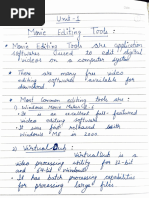 Unit-1
Movie Editing Tools :
• Movie Editing Tools are application
software used to edit digital
videos on a computer system
• There are many free video
editing software available for
download
• Most Common editing tools are :
1) Windows Movie Maker
It is a full featured
video editing software
It was for included with
windows ME in 2000
2) VirtualDub : VirtualDub is a
video processing utility for 32-bit
and 64-bit windows
• It has batch processing capabilities
for processing large files